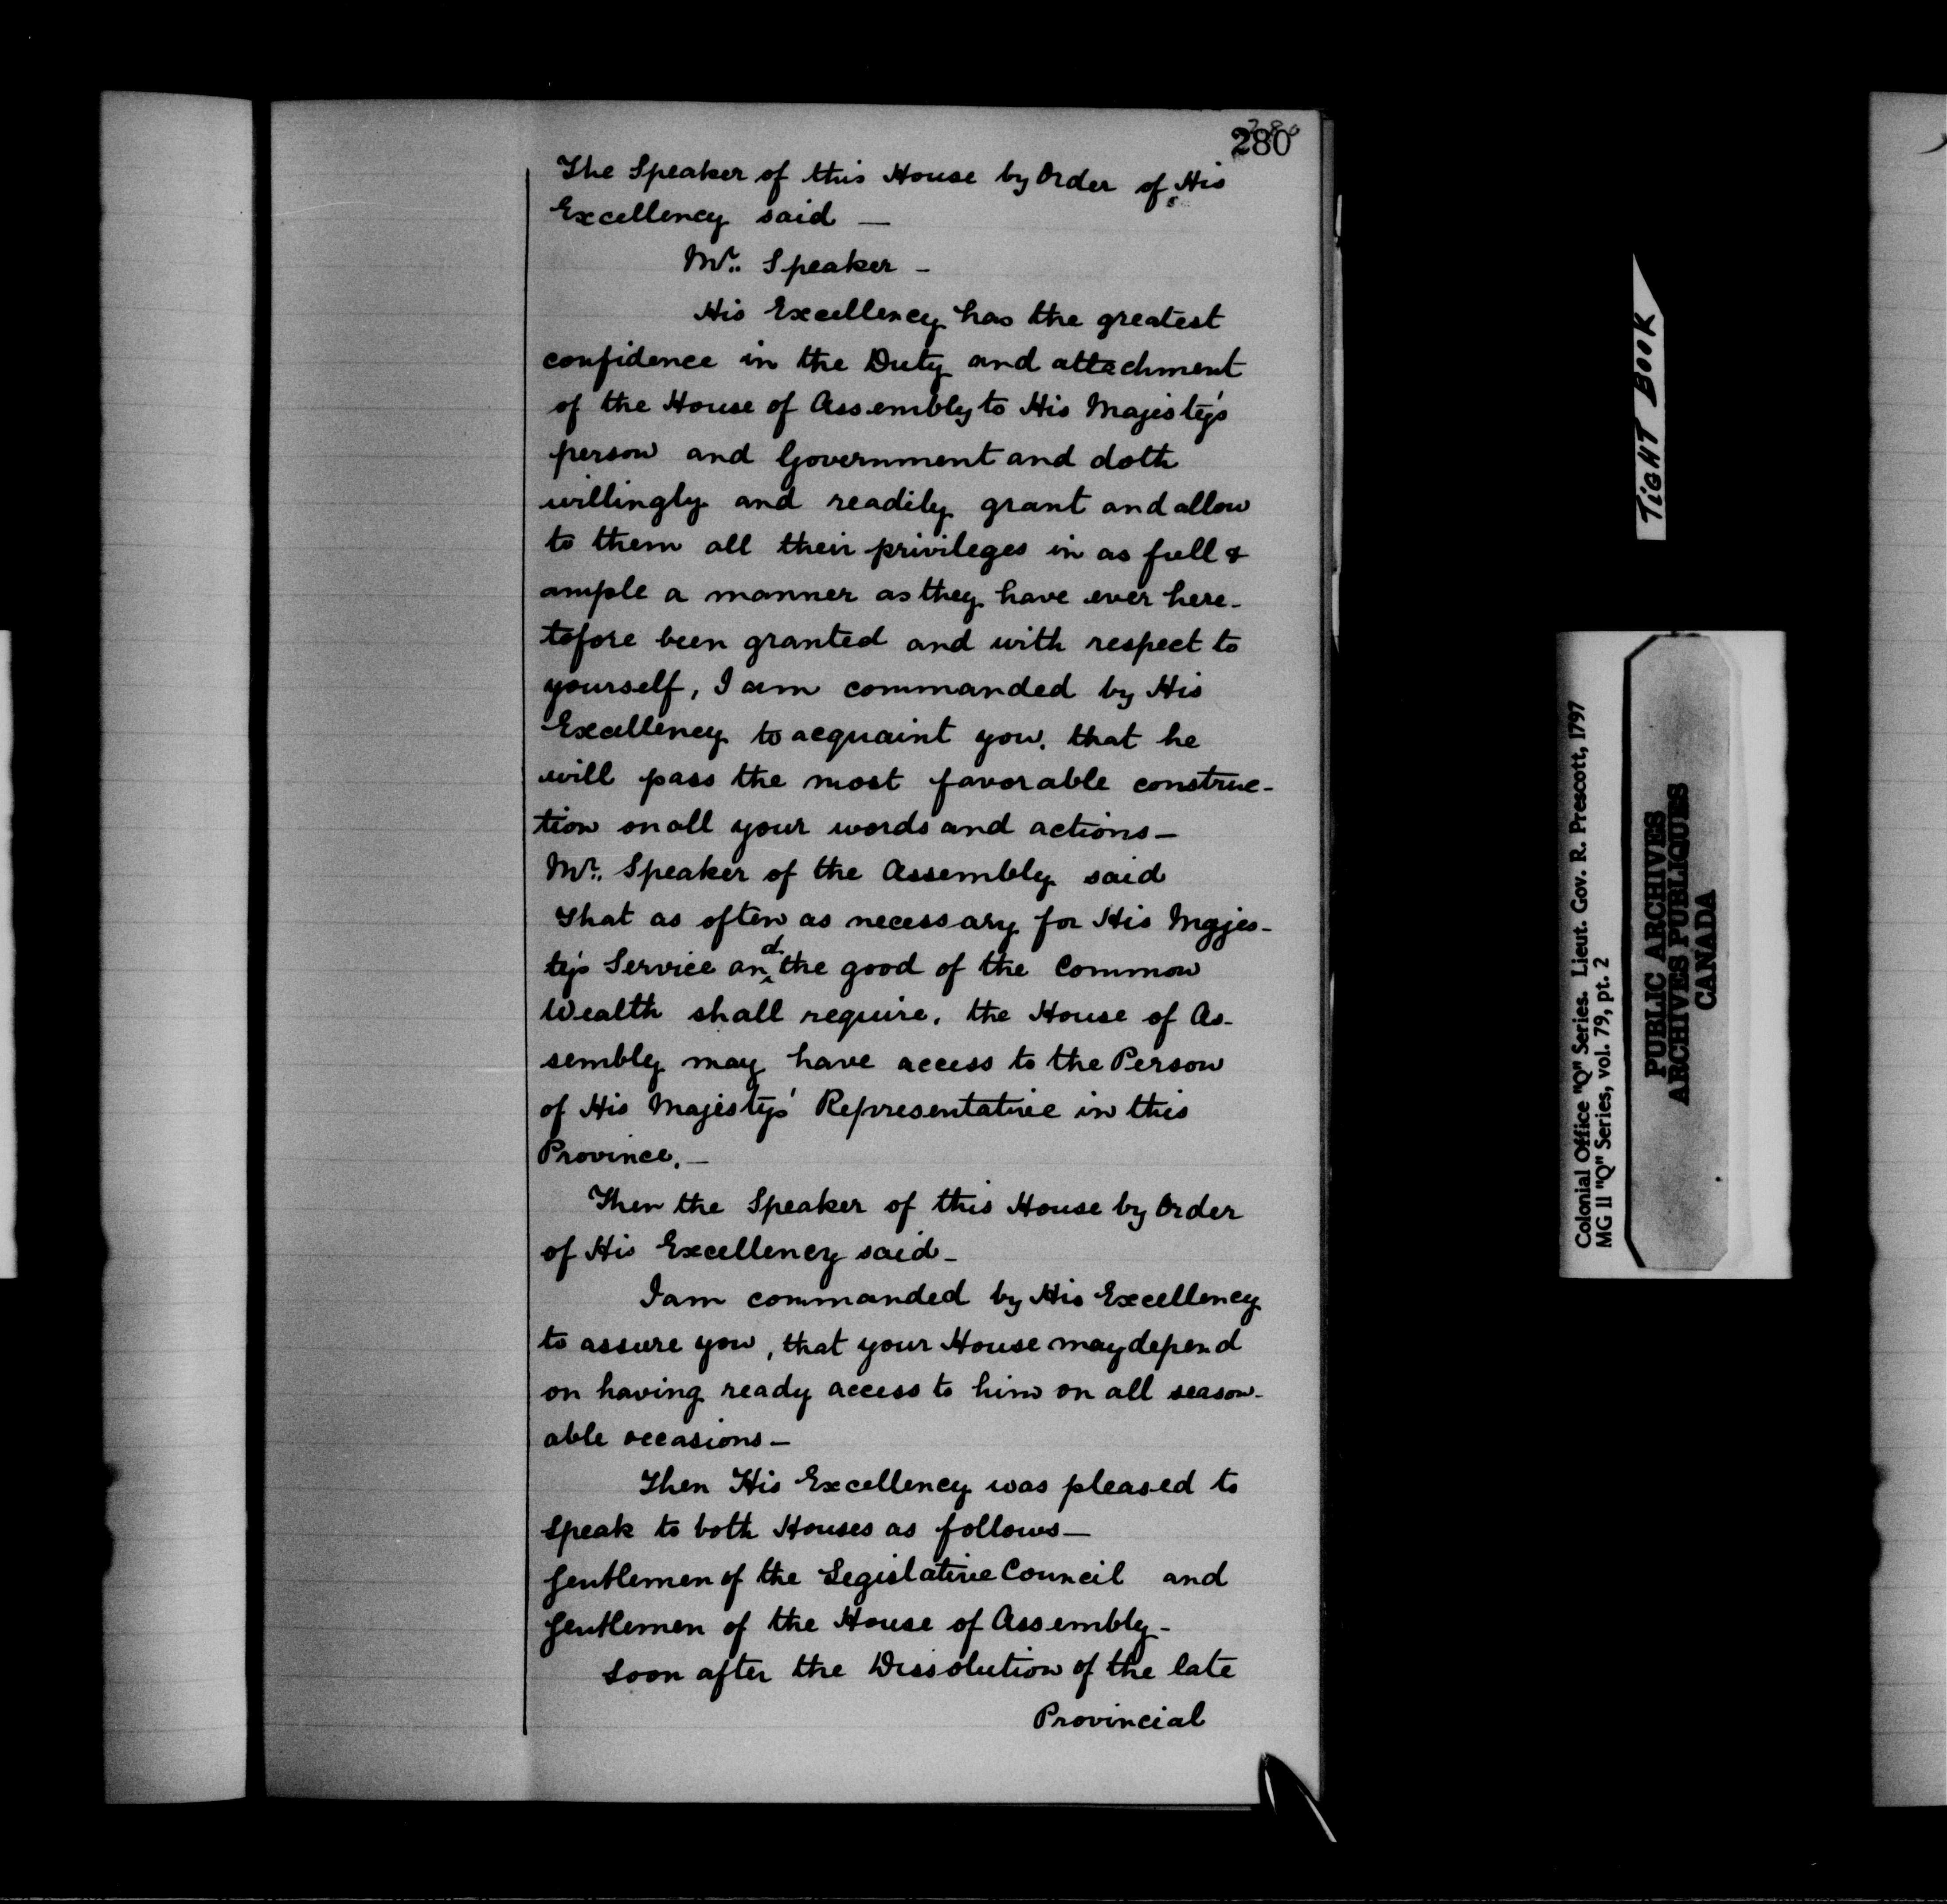 280
The Speaker of this House by Order of His
Excellency said —
Mr. Speaker –
His Excellency has the greatest
confidence in the Duty and attachment
of the House of Assembly to His Majesty's
person and Government and doth
willingly and readily grant and allow
to them all their privileges in as full &
ample a manner as they have ever here-
tofore been granted and with respect to
yourself, I am commanded by His
Excellency to acquaint you, that he
will pass the most favorable construc-
tion on all your words and actions —
Mr. Speaker of the Assembly said
That as often as necessary for His Majes-
ty's Service and the good of the Common
Wealth shall require, the House of As-
sembly may have access to the Person
of His Majesty's Representative in this
Province. —
Then the Speaker of this House by Order
of His Excellency said –
I am commanded by His Excellency
to assure you, that your House may depend
on having ready access to him on all season-
able occasions –
Then His Excellency was pleased to
speak to both Houses as follows —
Gentlemen of the Legislative Council and
Gentlemen of the House of Assembly –
Soon after the Dissolution of the late
Provincial
TIGHT BOOK
Colonial Office "Q" Series. Lieut. Gov. R. Prescott, 1797
MG 11 "Q" Series, vol. 79, pt. 2
PUBLIC ARCHIVES
ARCHIVES PUBLIQUES
CANADA